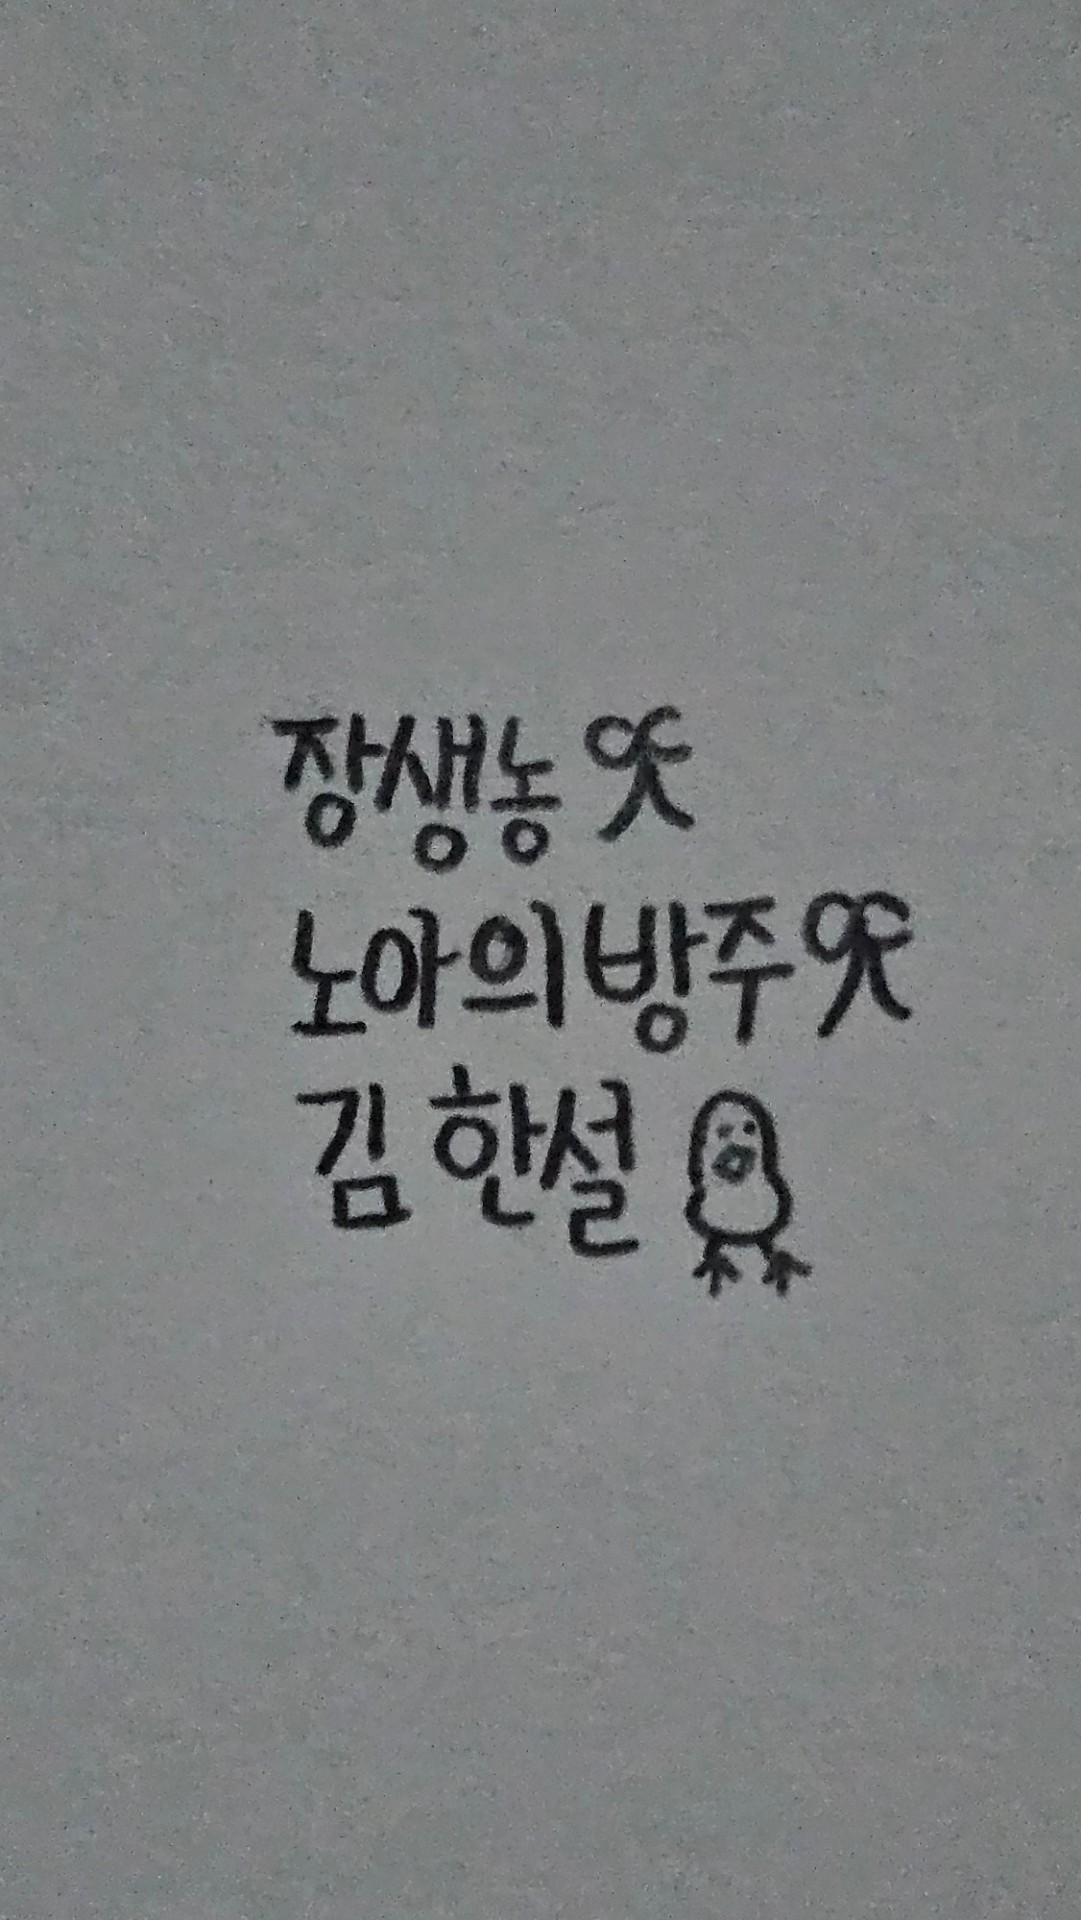 장생농
노아의방주
김한설